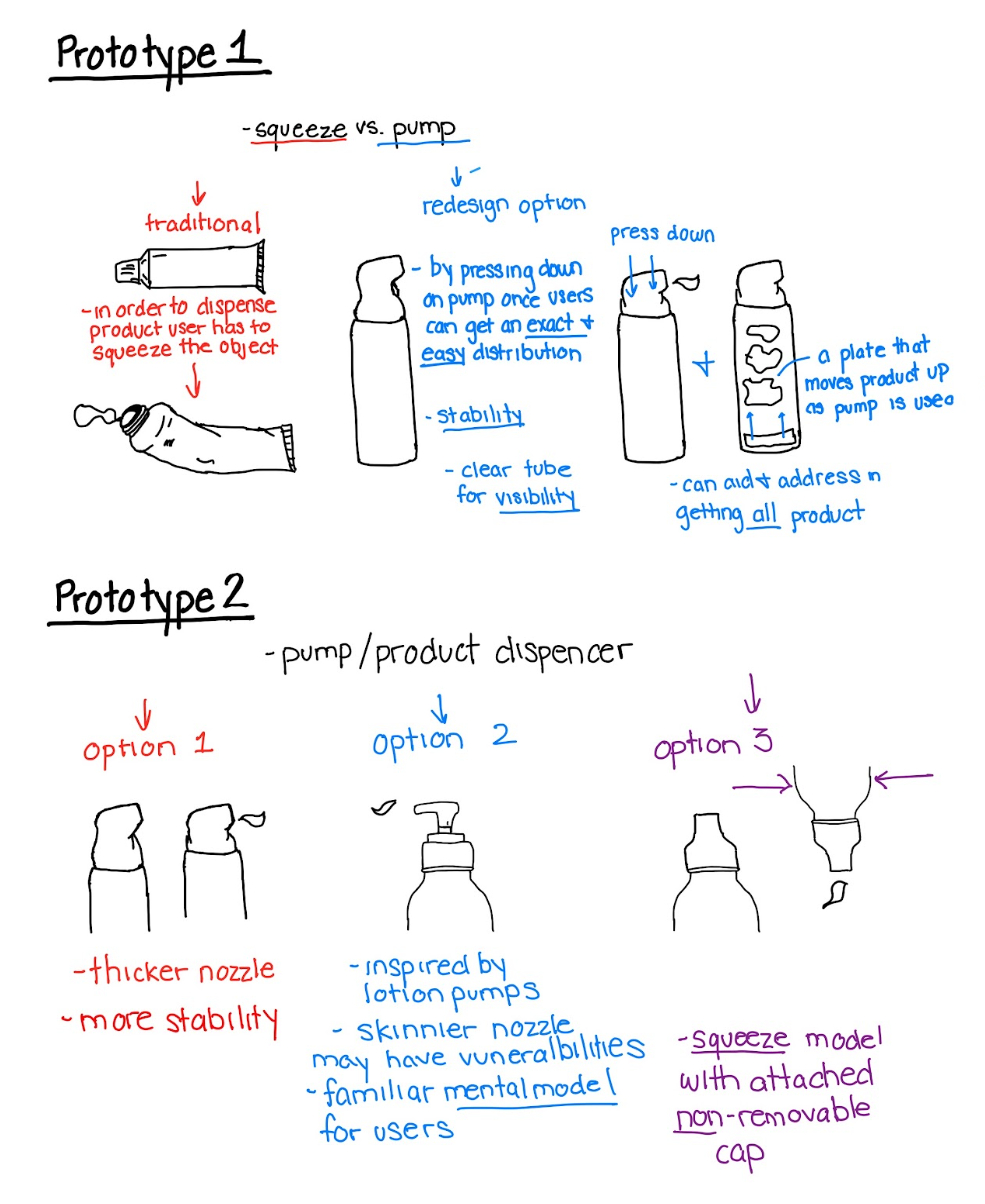 Prototype 1
- squeeze vs. pump
traditional
- in order to dispense
product user has to
squeeze the object
redesign option
- by pressing down
on pump once users
can get an exact +
easy distribution
- stability
- clear tube
for visibility
press down
+
- a plate that
moves product up
as pump is used
- can aid + address in
getting all product
Prototype 2
- pump/product dispencer
option 1
- thicker nozzle
- more stability
option 2
- inspired by
lotion pumps
- skinnier nozzle
may have vuneralbilities
- familiar mental model
for users
option 3
- squeeze model
with attached
non-removable
cap